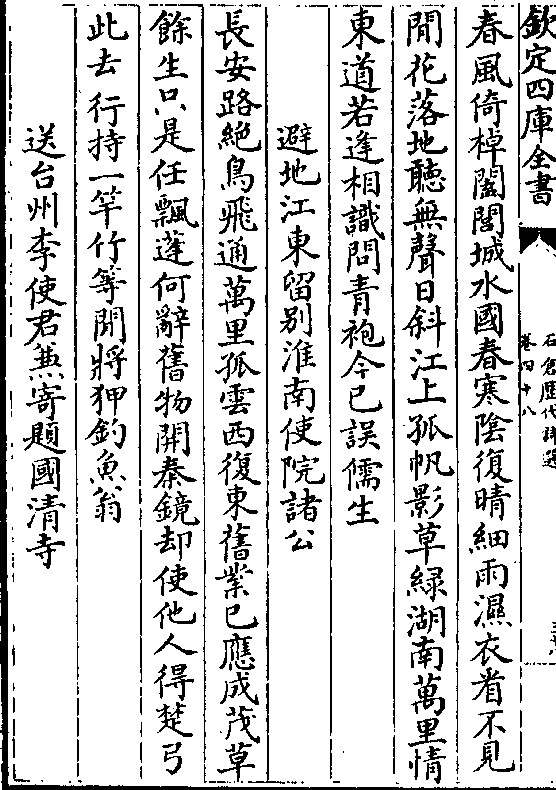 欽定四庫全書
石倉歷代詩選
卷四十八
春風倚棹闔閭城水國春寒陰復晴細雨濕衣看不見
閒花落地聽無聲日斜江上孤帆影草綠湖南萬里情
東道若逢相識問青袍今已誤儒生
避地江東留别淮南使院諸公
長安路絶鳥飛通萬里孤雲西復東舊業已應成茂草
餘生只是任飄蓬何辭舊物開秦鏡却使他人得楚弓
此去行持一竿竹等閒將狎釣魚翁
送台州李使君兼寄題國清寺